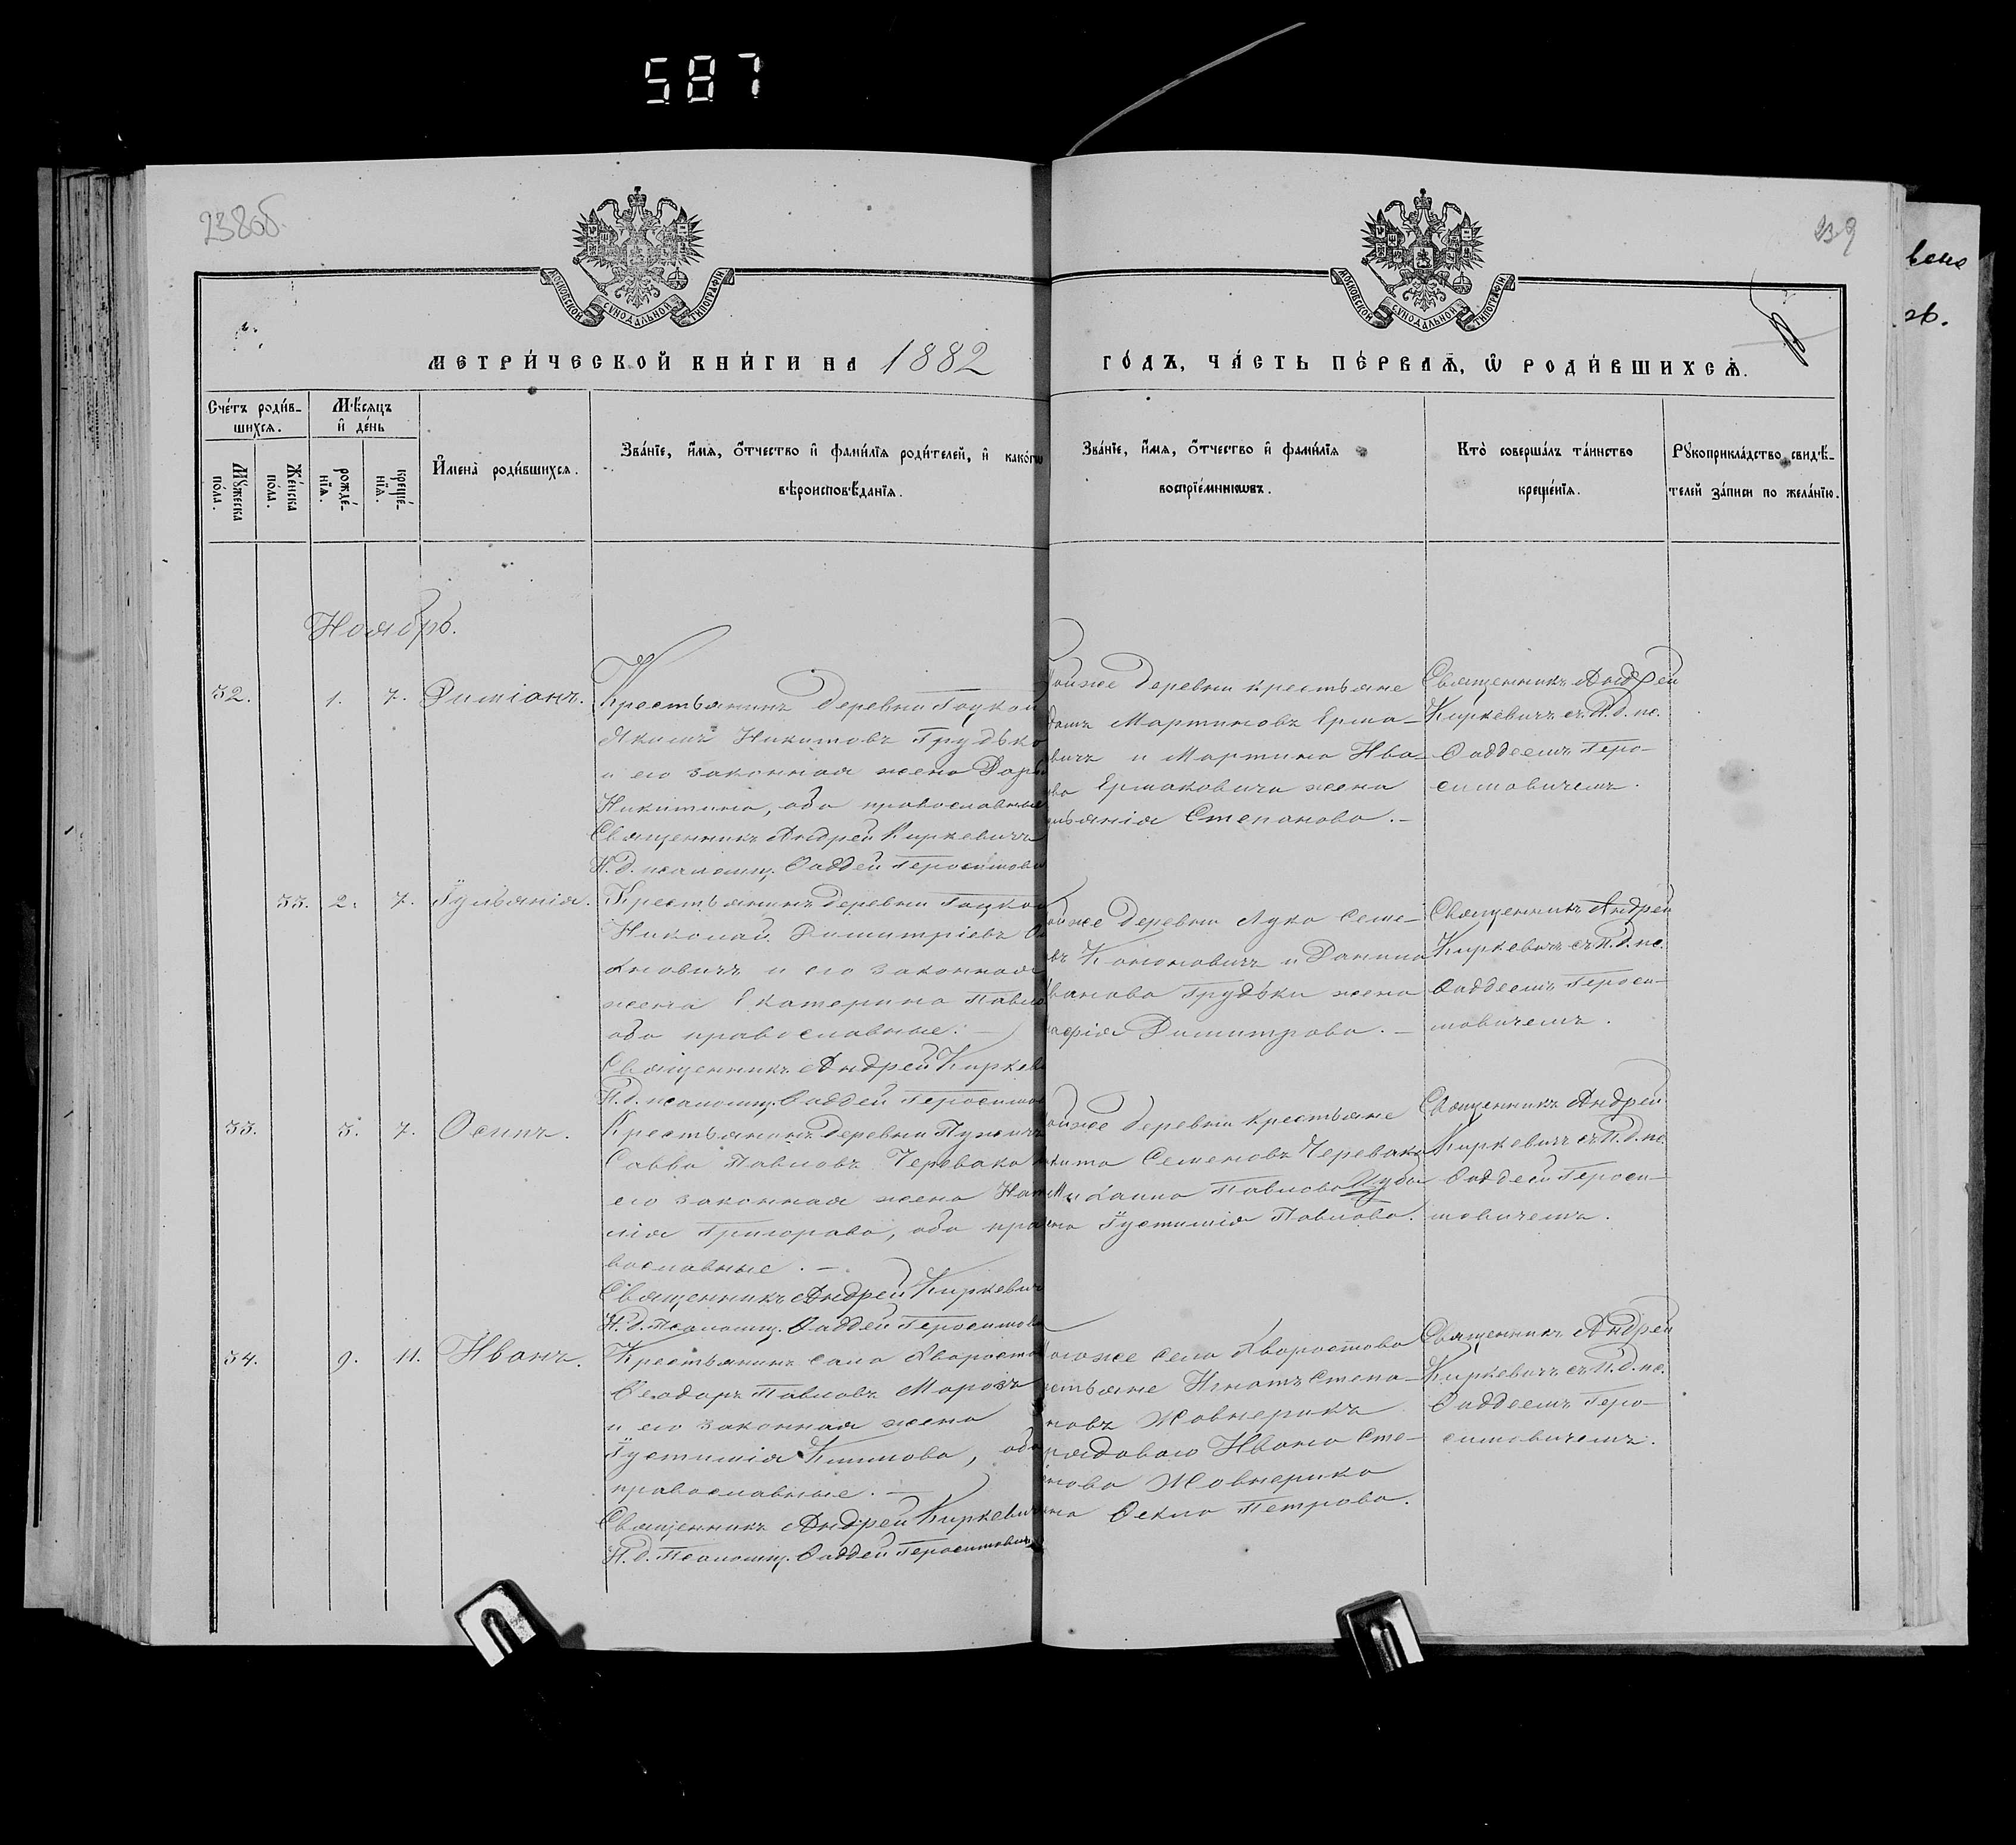 587
238об.
239
МОСКОВСКОЙ СУНОДАЛЬНОЙ ТИПОГРАФІИ
МОСКОВСКОЙ СУНОДАЛЬНОЙ ТИПОГРАФІИ
МЕТРИ́ЧЕСКОЙ КНИ́ГИ НА 1882
ГО́ДЪ, ЧА́СТЬ ПЕ́РВАѦ, Ѡ РОДИ́ВШИХСѦ.
Сче́тъ роди́в-
шихсѧ.
Мꙋ́жеска
по́ла.
Же́нска
по́ла.
Мѣ́сѧцъ
и҆ де́нь
рожде́-
нїѧ.
креще́-
нїѧ.
И҆мена̀ роди́вшихсѧ.
Зва́нїе, и҆́мѧ, ѻ҆́тчество и҆ фами́лїѧ роди́телей, и҆ како́гѡ
вѣроисповѣ́данїѧ.
Зва́нїе, и҆́мѧ, ѻ҆́тчество и҆ фами́лїѧ
воспрїе́мникѡвъ.
Кто̀ соверша́лъ та́инство
креще́нїѧ.
Рꙋкоприкла́дство свидѣ́-
телей за́писи по жела́нїю.
Ноябрь.
52. 1. 7. Диміанъ.
Крестьянинъ деревни Гоцкой
Якимъ Никитовъ Грудько
и его законная жена Дарь
Никитина, оба православные
Священникъ Андрей Киркевичъ
И.д. псаломщ. Фаддей Геросимови
тойже деревни крестьяне
Мартиновъ Ерма-
вичъ и Мартина Ива-
ва Ермаковича жена
Степанова.
Священникъ Андрей
Киркевичъ съ И.д. пс.
Фаддеемъ Геро-
симовичемъ.
53. 2. 7. Іульянія.
Крестьянинъ деревни Гоцкой
Николай Димитріевъ
и его законная
жена Екатерина Павло
оба православные.
Священникъ Андрей Киркев
И.д. псаломщ. Фаддей Геросимов
ойже деревни Лука Семе-
въ Кононовичъ и Данила
Иванова Грудьки жена
Димитрова.
Священникъ Андрей
Киркевичъ съ И.д. пс.
Фаддеемъ Героси-
мовичемъ.
53. 5. 7. Осипъ.
Крестьянинъ деревни
Савва Павловъ Черевако
его законная жена Ната
лія Григорова, оба пра
вославные.
Священникъ Андрей Киркевич
И.д. Псаломщ. Фаддей Геросимов
ойже деревни крестьяне
Никита Семеновъ Черевако
Павлова
Іустинія Павлова.
Священникъ Андрей
Киркевичъ съ И.д. пс.
Фаддей Героси-
мовичемъ.
54. 9. 11. Иванъ.
Крестьянинъ села Хворосто
Ѳеодоръ Павловъ Морозъ
и его законная жена
Іустинія Климова, оба
православные.
Священникъ Андрей Киркевич
И.д. Псаломщ. Фаддей Геросимович
тогоже села Хворостова
крестьяне Игнатъ Степа-
новъ Жовнерикъ
рядоваго Ивана Сте-
нова Жовнерика
на Ѳекла Петрова.
Священникъ Андрей
Киркевичъ съ И.д. пс.
Фаддеемъ Геро-
симовичемъ.